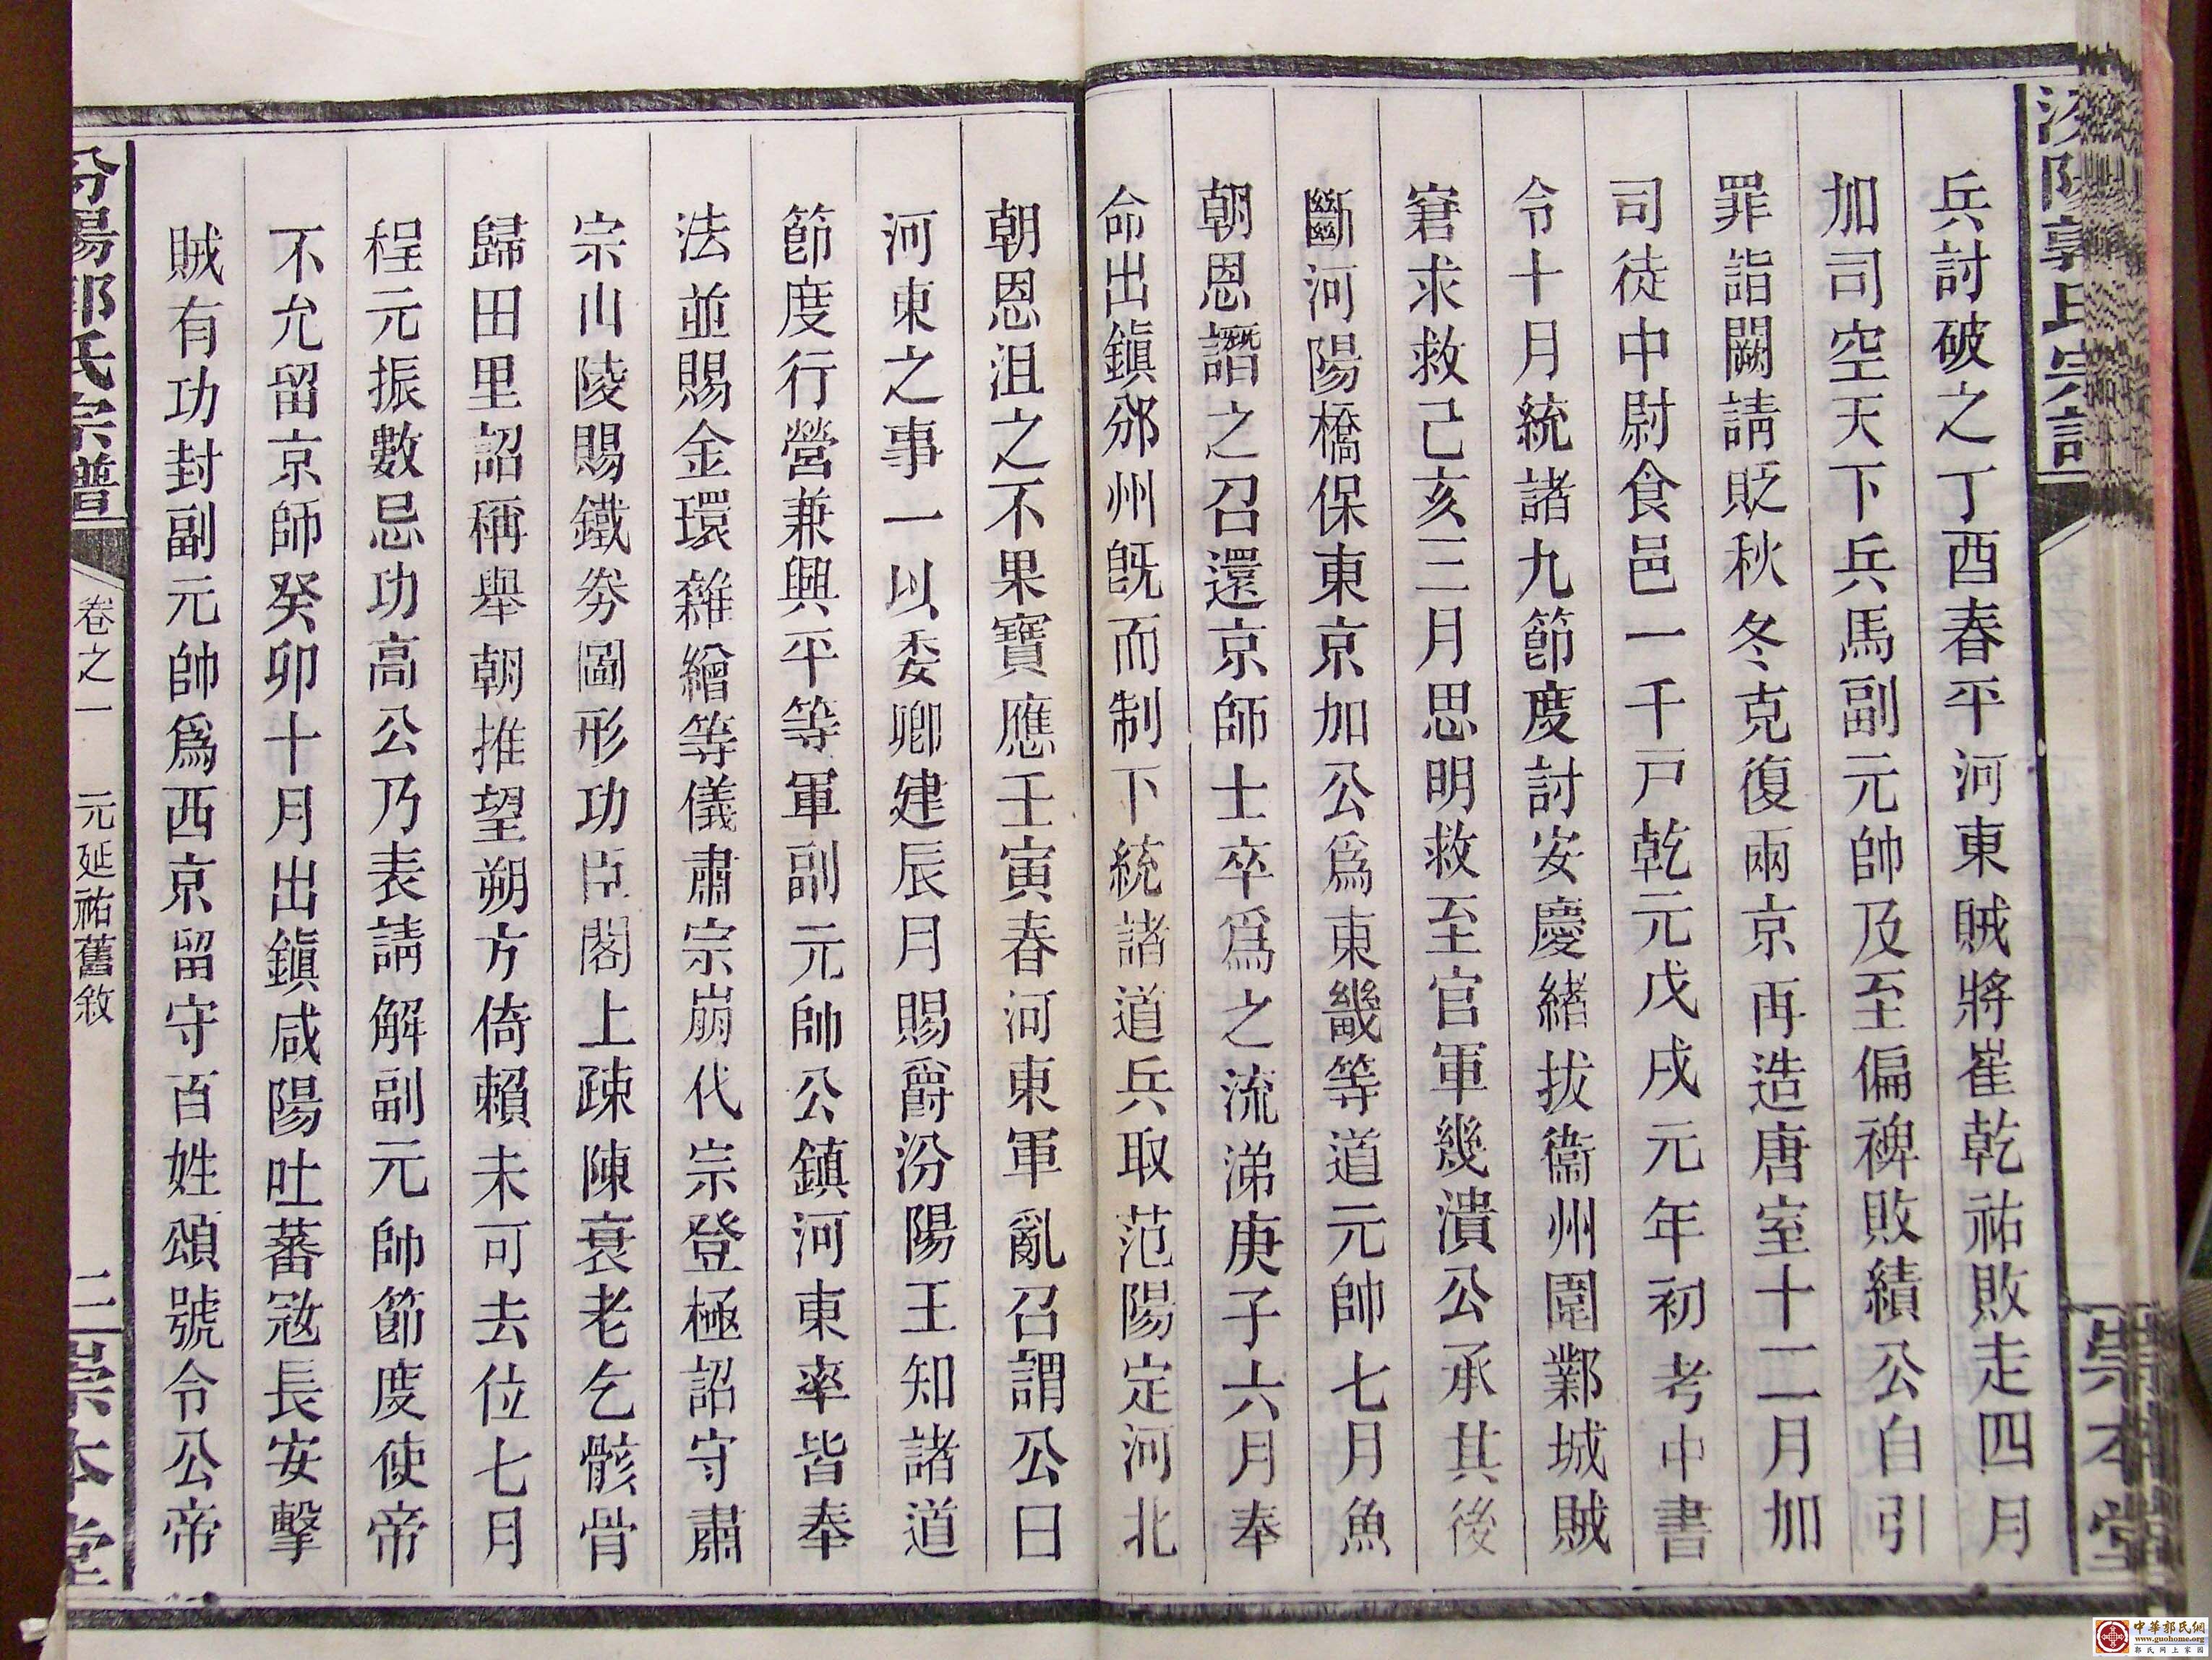 汾陽郭氏宗譜
崇本堂
兵討破之丁酉春平河東賊將崔乾祐敗走四月
加司空天下兵馬副元帥及至偏裨敗績公自引
罪詣闕請貶秋冬克復兩京再造唐室十二月加
司徒中尉食邑一千戸乾元戊戌元年初考中書
令十月統諸九節度討安慶緒拔衞州圍鄴城賊
窘求救己亥三月思明救至官軍幾潰公承其後
斷河陽橋保東京加公爲東畿等道元帥七月魚
朝恩譖之召還京師士卒爲之流涕庚子六月奉
命出鎭邠州旣而制下統諸道兵取范陽定河北
朝恩沮之不果寶應壬寅春河東軍亂召謂公曰
河東之事一以委卿建辰月賜爵汾陽王知諸道
節度行營兼興平等軍副元帥公鎮河東率皆奉
法並賜金環雜繒等儀肅宗崩代宗登極詔守肅
宗山陵賜鐵劵圖形功臣閣上疎陳衰老乞骸骨
歸田里詔稱舉朝推望朔方倚賴未可去位七月
程元振數忌功高公乃表請解副元帥節度使帝
不允留京師癸卯十月出鎭咸陽吐蕃宼長安擊
賊有功封副元帥爲西京留守百姓頌號令公帝
汾陽郭氏宗譜
卷之一
元延祐舊敘
二
崇本堂
中華郭氏網
www.guohome.org
郭氏网上家园